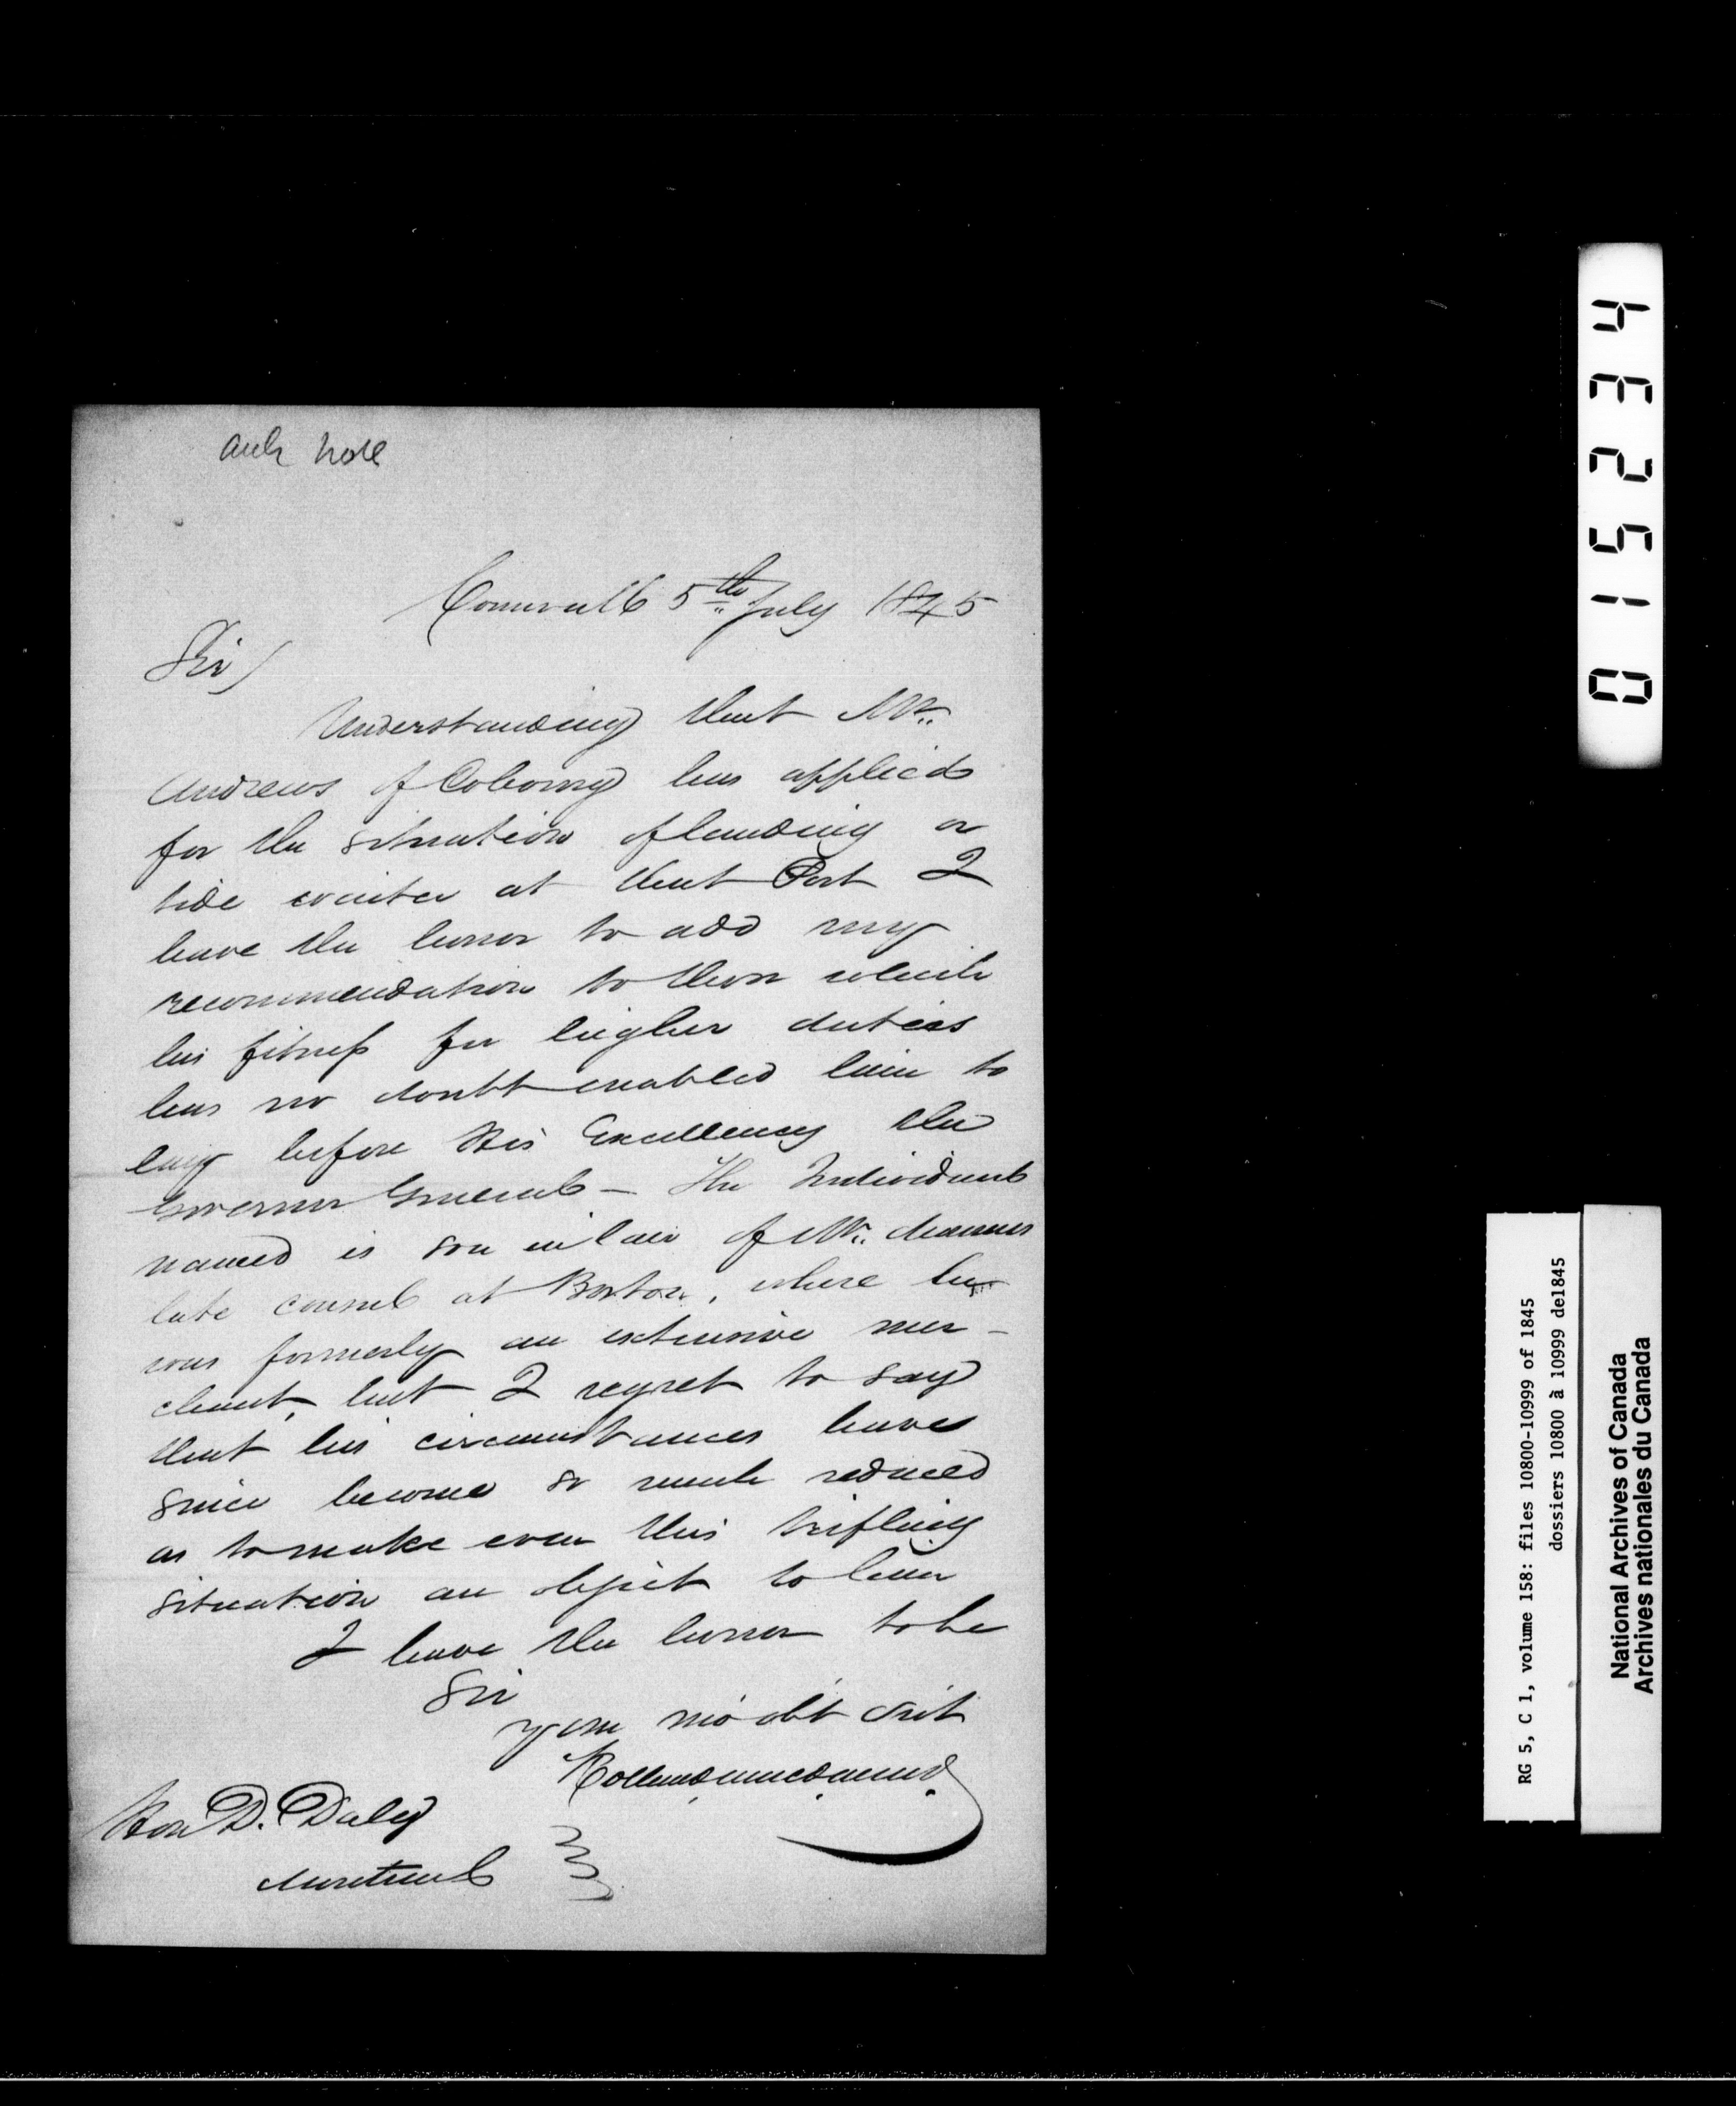 Cornwall 5th July 1845
Sir/
Understanding that Mr.
Andrews of Cobourg has applied
for the situation of landing or
tide waiter at that Port I
have the honor to add my
recommendation to those which
his fitness for higher duties
has no doubt enabled him to
lay before His Excellency the
Governor General – The Individual
named is son in law of Mr. Manners
late consul at Boston, where he
was formerly an extensive mer-
chant, but I regret to say
that his circumstances have
since become so much reduced
as to make even this trifling
situation an object to him
I have the honor to be
Sir
your mo obt Svt
Rolland Macdonald
Hon D. Daly
Montreal
015234
RG 5, C 1, volume 158: files 10800-10999 of 1845
dossiers 10800 à 10999 de1845
National Archives of Canada
Archives nationales du Canada